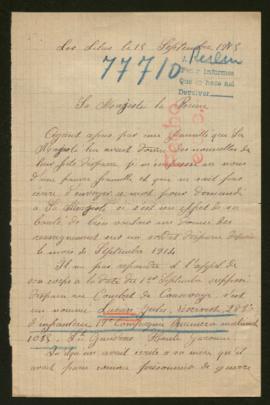 Les Lilas le 15 Septembre 1915
77710
Berlin
Pedir informes
Que se hace así
Devolver
Sa Majesté la Reine
Ayant appris par une famille que Sa
Majesté lui avait donné des nouvelles de
leur fils disparu je m'empresse au nom
d'une pauvre famille et qui ne sait pas
écrire d'envoyer ce mot pour demander
à Sa Majesté si c'est un effet de sa
bonté de bien vouloir me donner des
renseignements sur un soldat disparu depuis
le mois de Septembre 1914
Il n'a pas répondu à l'appel de
son corps à la date du 1er Septembre supposé
disparu au Combat de c'est
un nommé Jules, réserviste 28
d'infanterie 17e Compagnie Numéro matricule
1098, St Gaudens Haute Garonne
avait écrit à sa mère qu'il
avait pour comme prisonnier de guerre